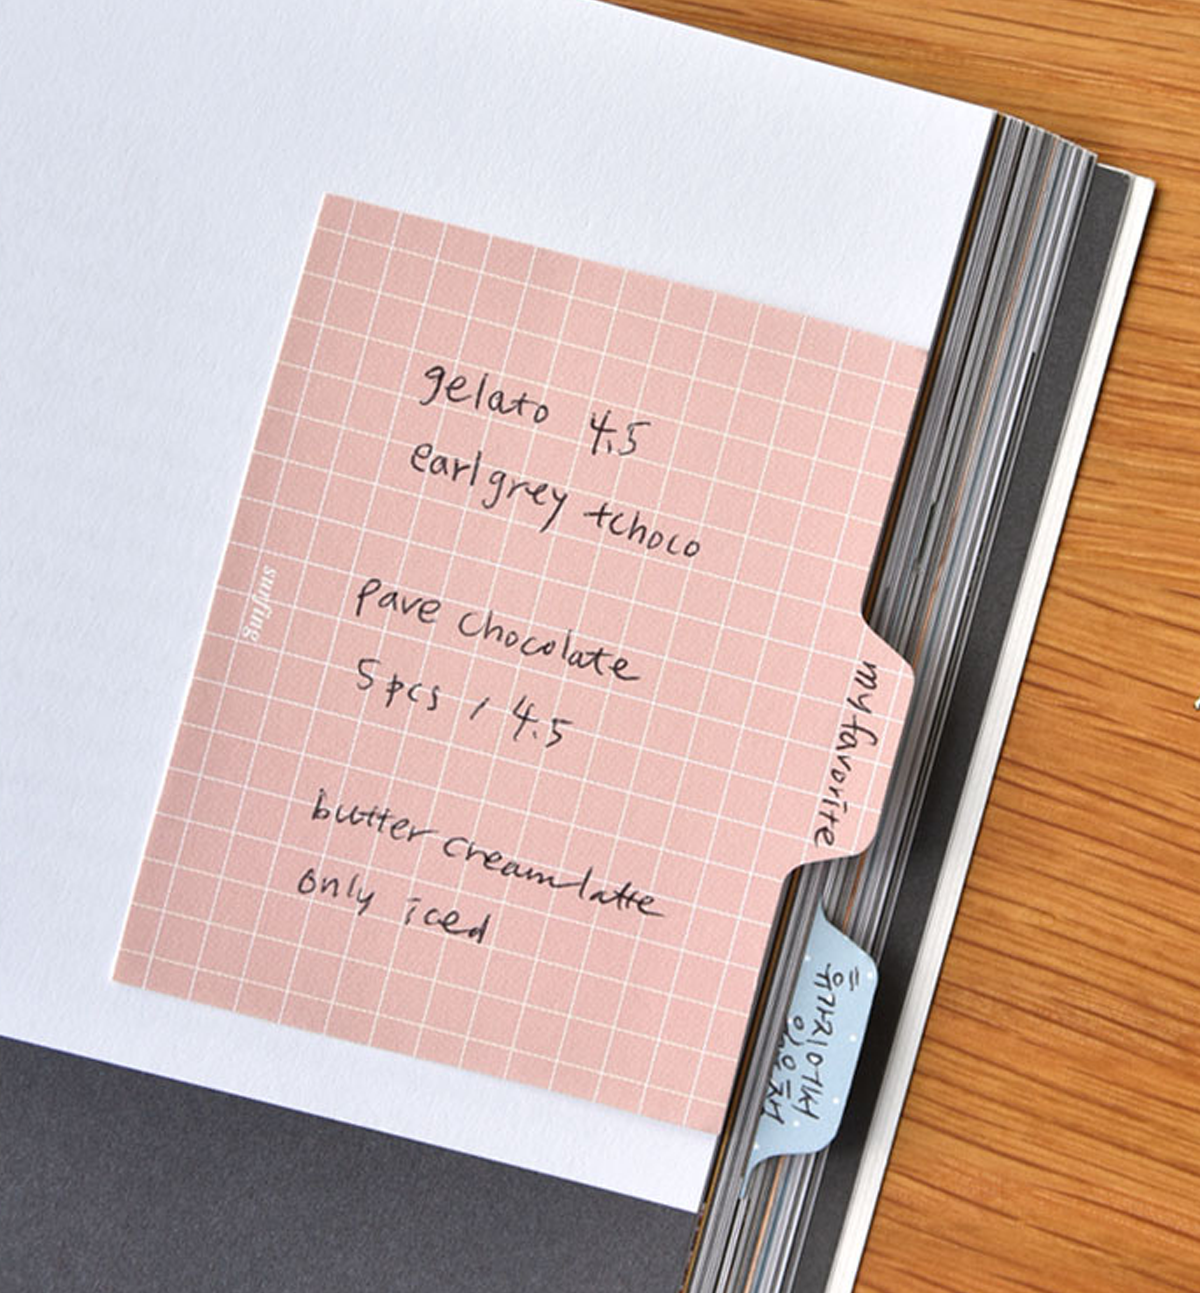 gelato 4.5
earl grey +choco
pave chocolate
5 pcs / 4.5
butter cream latte
only iced
my favorite
surfing